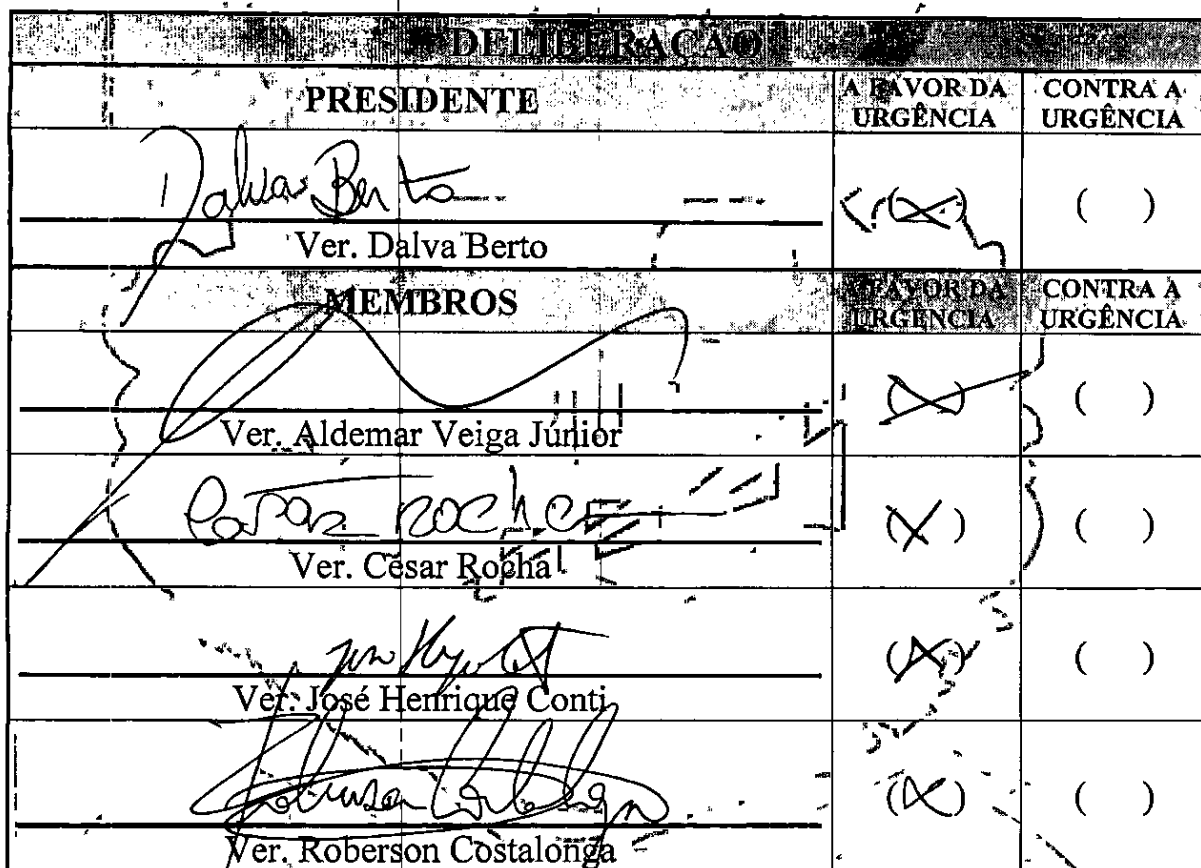 DELIBERAÇÃO
PRESIDENTE A FAVOR DA URGÊNCIA CONTRA A URGÊNCIA
Dalva Berto (X) ( )
Ver. Dalva Berto
MEMBROS A FAVOR DA URGÊNCIA CONTRA A URGÊNCIA
(X) ( )
Ver. Aldemar Veiga Júnior
Cesar Rocha (X) ( )
Ver. César Rocha
(X) ( )
Ver. José Henrique Conti
(X) ( )
Ver. Roberson Costalonga